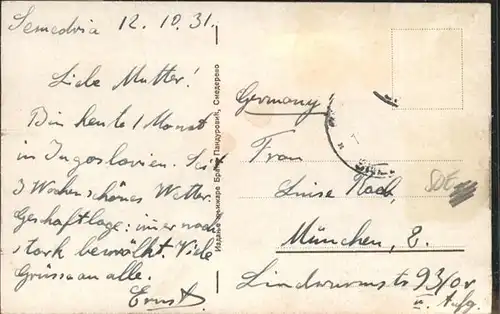 Semedria 12.10.31.
Liebe Mutter!
Bin heute 1 Monat
in Jugoslavien. Seit
3 Wochen schönes Wetter.
Geshäftlage: immer noch
stark bewölkt. Viele
Grüsse an alle.
Ernst
Издање књижаре Браће Пандуровић, Смедерево
(Germany)
Frau
Luise
München, 2.
Lindwurmstr 93/0r
u. Aufg.